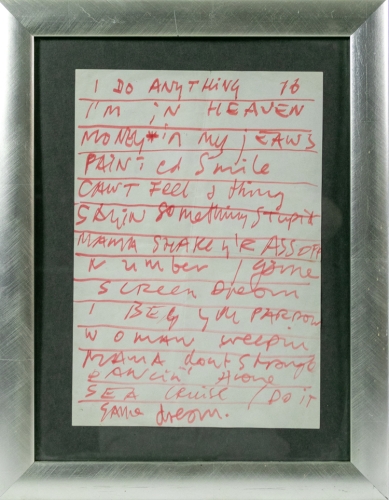 I DO ANYTHING 16
I'M IN HEAVEN
MONEY IN MY JEANS
PAINTED SMILE
CAN'T FEEL A THING
SAYIN SOMETHING STUPID
MAMA SHAKE Y'R ASS OFF
NUMBER / game
SCREEN DREAM
I BEG YOUR PARDON
WOMAN weepin
MAMA don't
DANCIN' Alone
SEA CRUISE / DO IT
same dream.